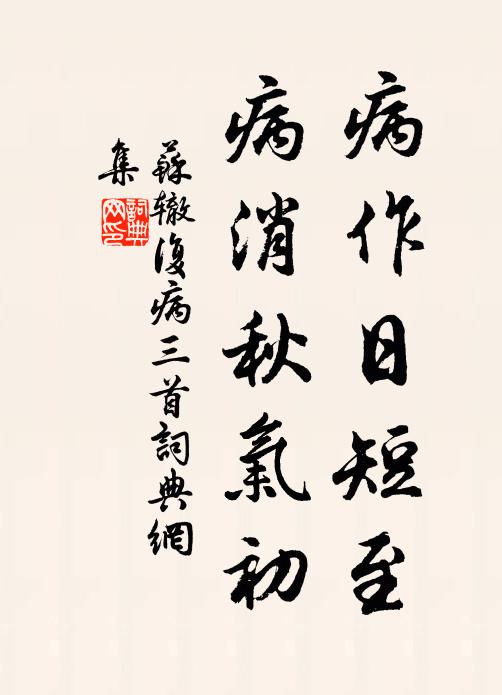 病作日短至
病消秋氣初
蘇辙復病三首詞典網
集
詞典
网印